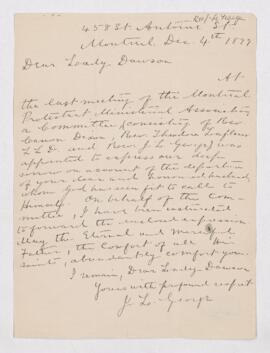 458 St Antoine St
Montreal Dec 4th 1899
Dear Lady Dawson
At
the last meeting of the Montreal
Protestant Ministerial Association
a Committee (consisting of Rev
Canon Dixon, Rev. Theodore Lafleur
L L D. and Rev. J. L. George) was
appointed to express our deep
sorrow on account of the departure
of your dear and honored husband,
whom God has seen fit to call to
Himself. On behalf of the Com-
mittee, I have been instructed
to forward the enclosed expression.
May the Eternal and Merciful
Father, the Comfort of all His
saints, abundantly comfort you.
I remain, Dear Lady Dawson
Yours with profound respect
J. L. George